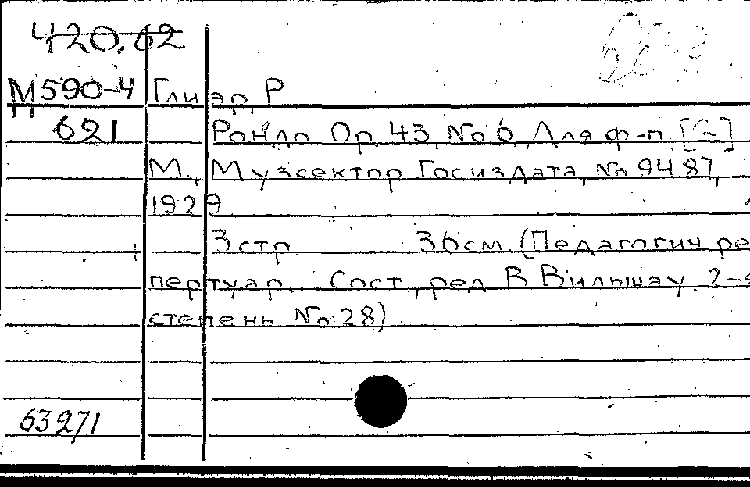 420.62
М590-4 Глиэр, Р
621 Рондо Ор. 43, No 6 Для ф-п.
М., Музсектор Госиздата, No 9487,
1929
3 стр 36 см. (Педагогич. ре
пертуар. Сост., ред. В Вильшау. 2-я
степень No 28)
63271